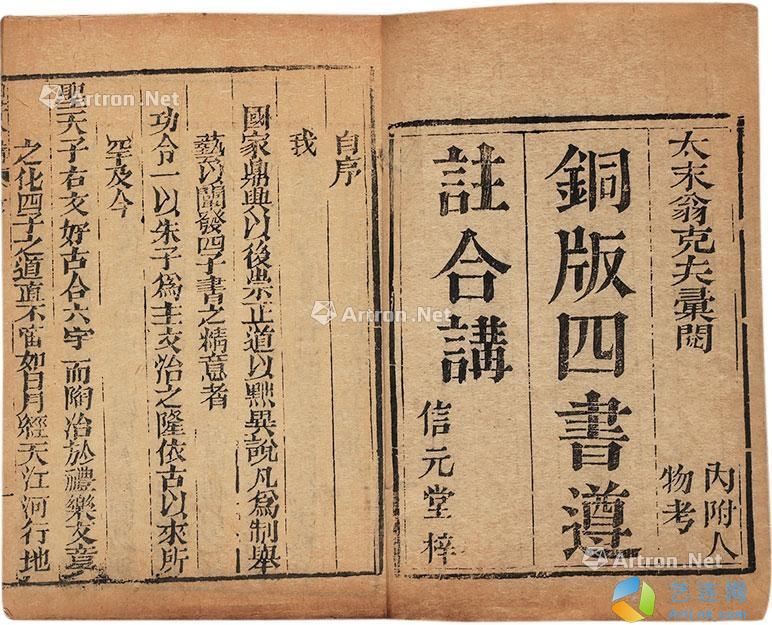 太末翁克夫彙閱
內附人
物考
銅版四書遵
註合講
信元堂梓
自序
我
國家鼎興以後崇正道以黜異說凡為制舉
藝以闡發四子書之精意者
功令一以朱子為主文治之隆依古以來所
罕及今
聖天子右文好古合六宇而陶冶於禮樂文章
之化四子之道直不啻如日月經天江河行地
Artron.Net
Artron.Net
Artron.Net
Artron.Net
Artron.Net